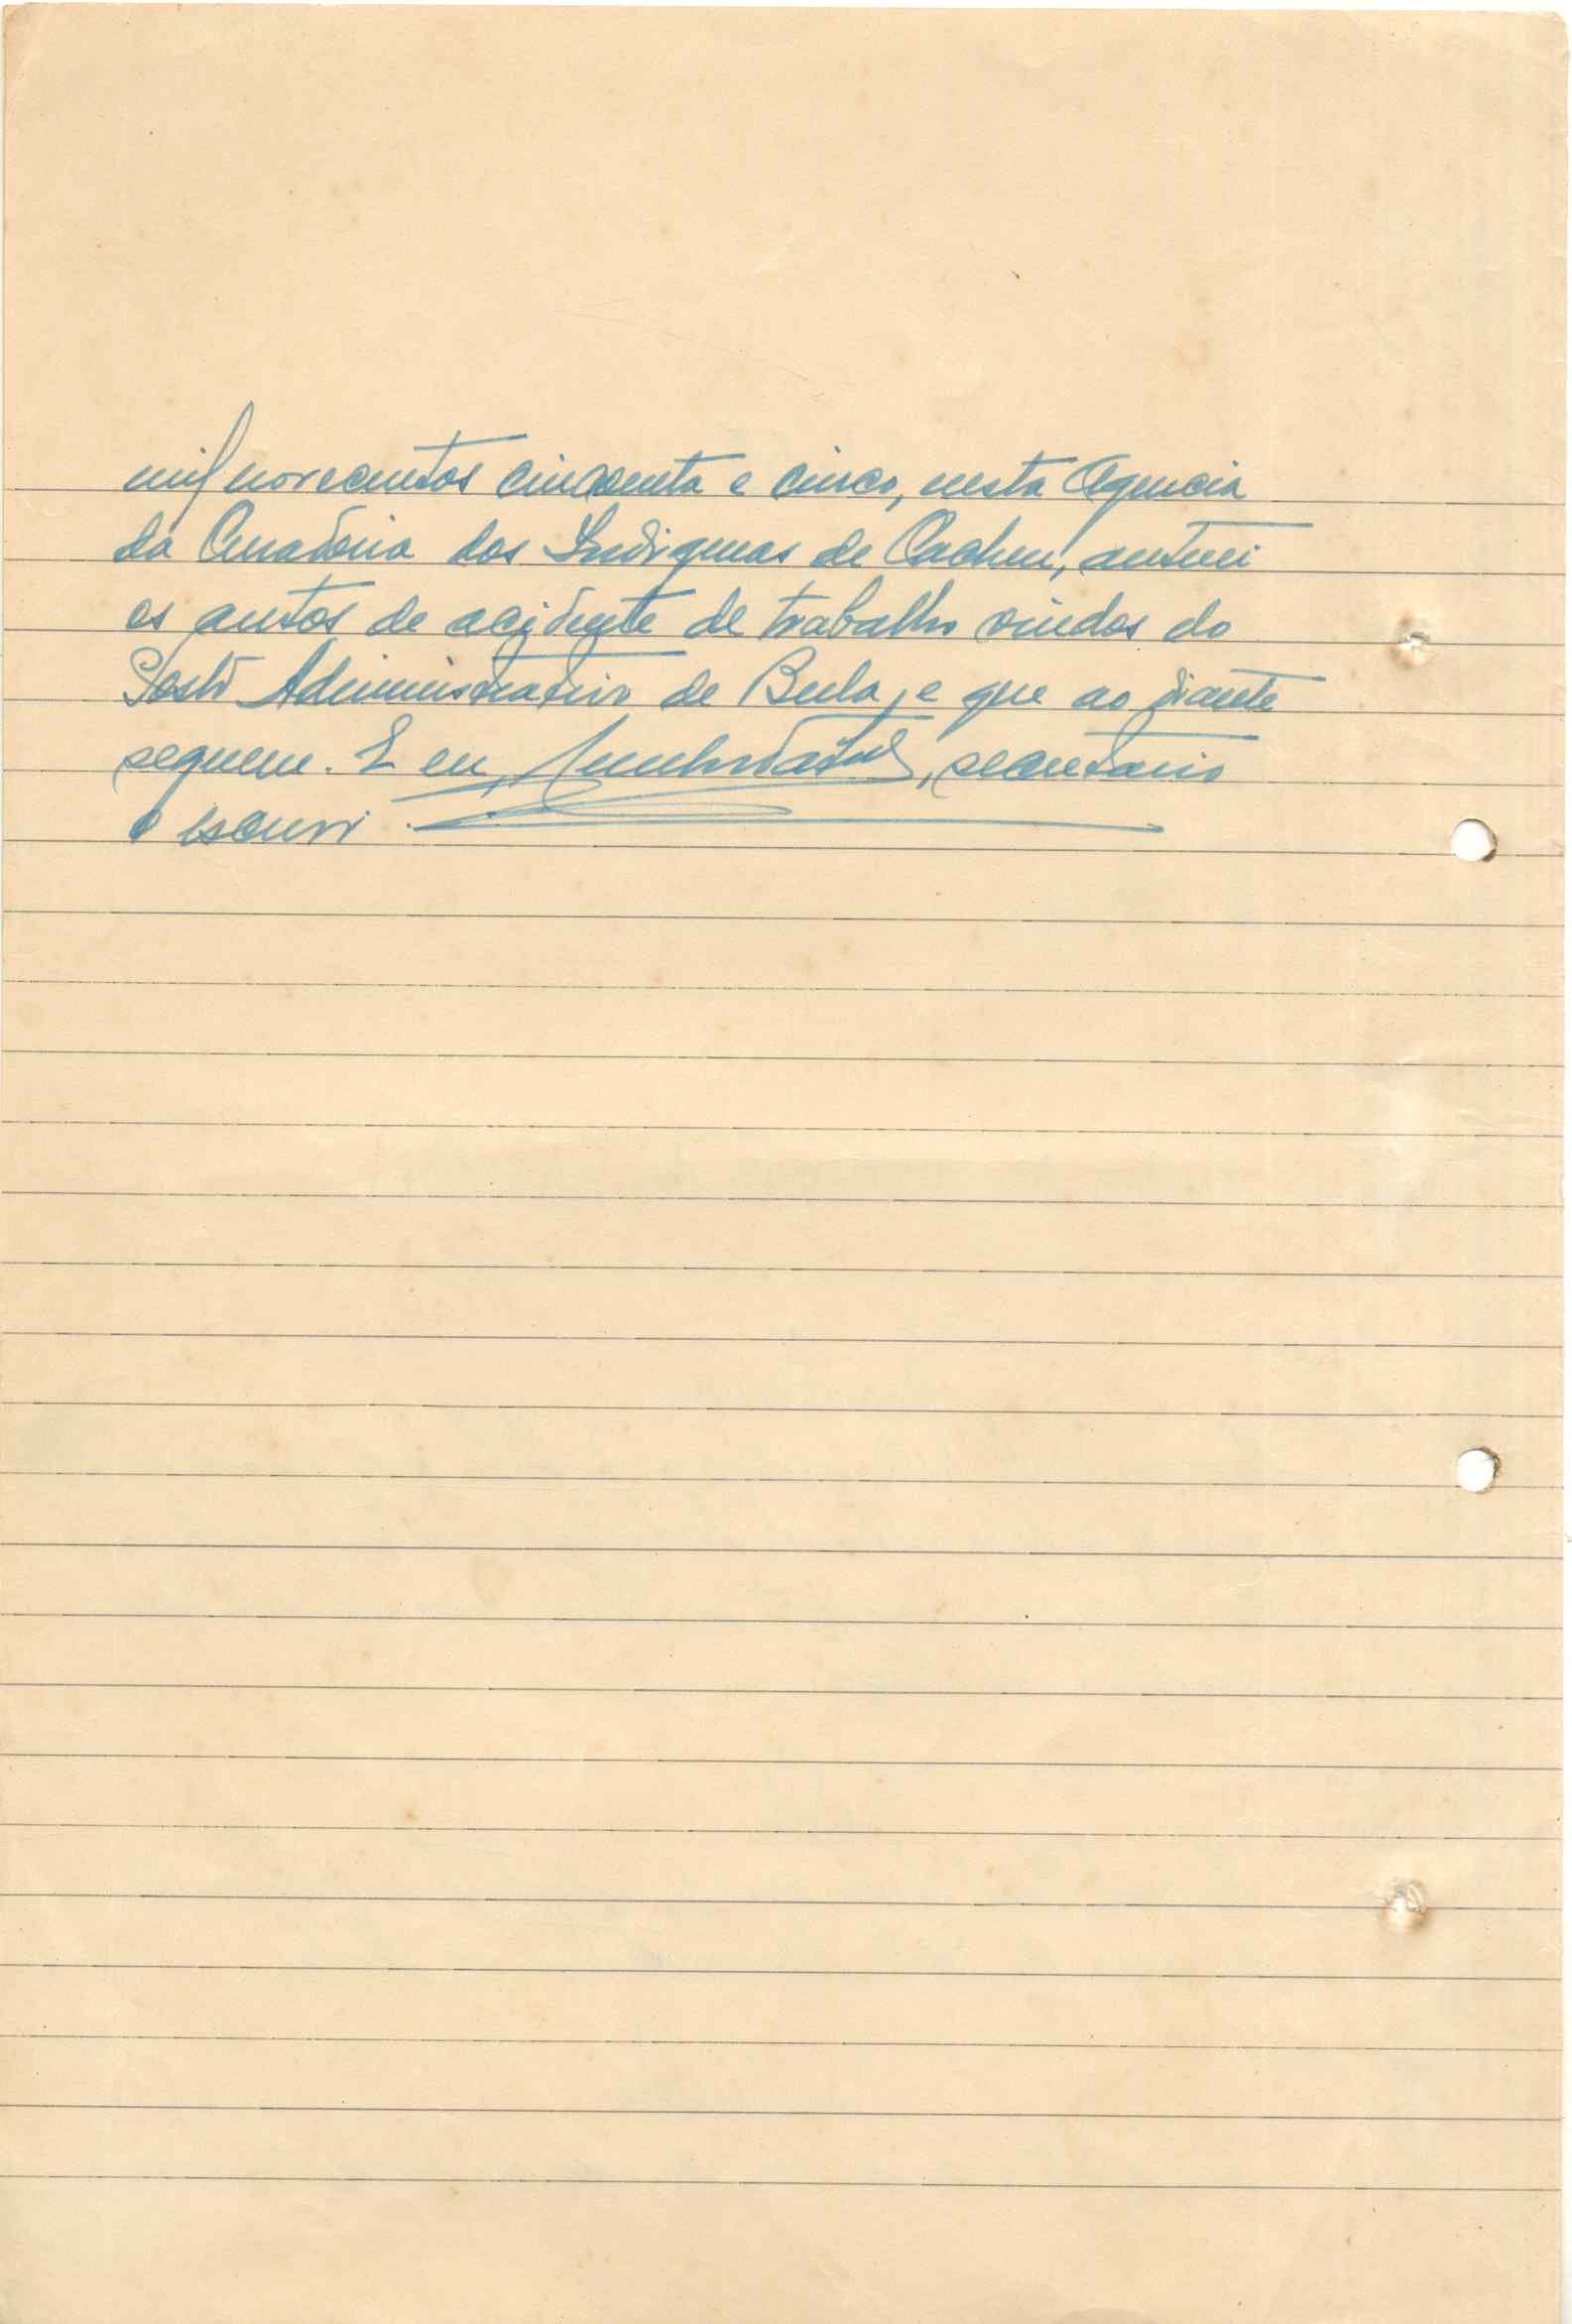 mil novecentos cincoenta e cinco, nesta Agencia
da Curadoria dos Indigenas de Cacheu, autuei
os autos de acidente de trabalho vindos do
Posto Administrativo de Bula, e que ao diante
seguem. E eu, , secretario
o escrevi.